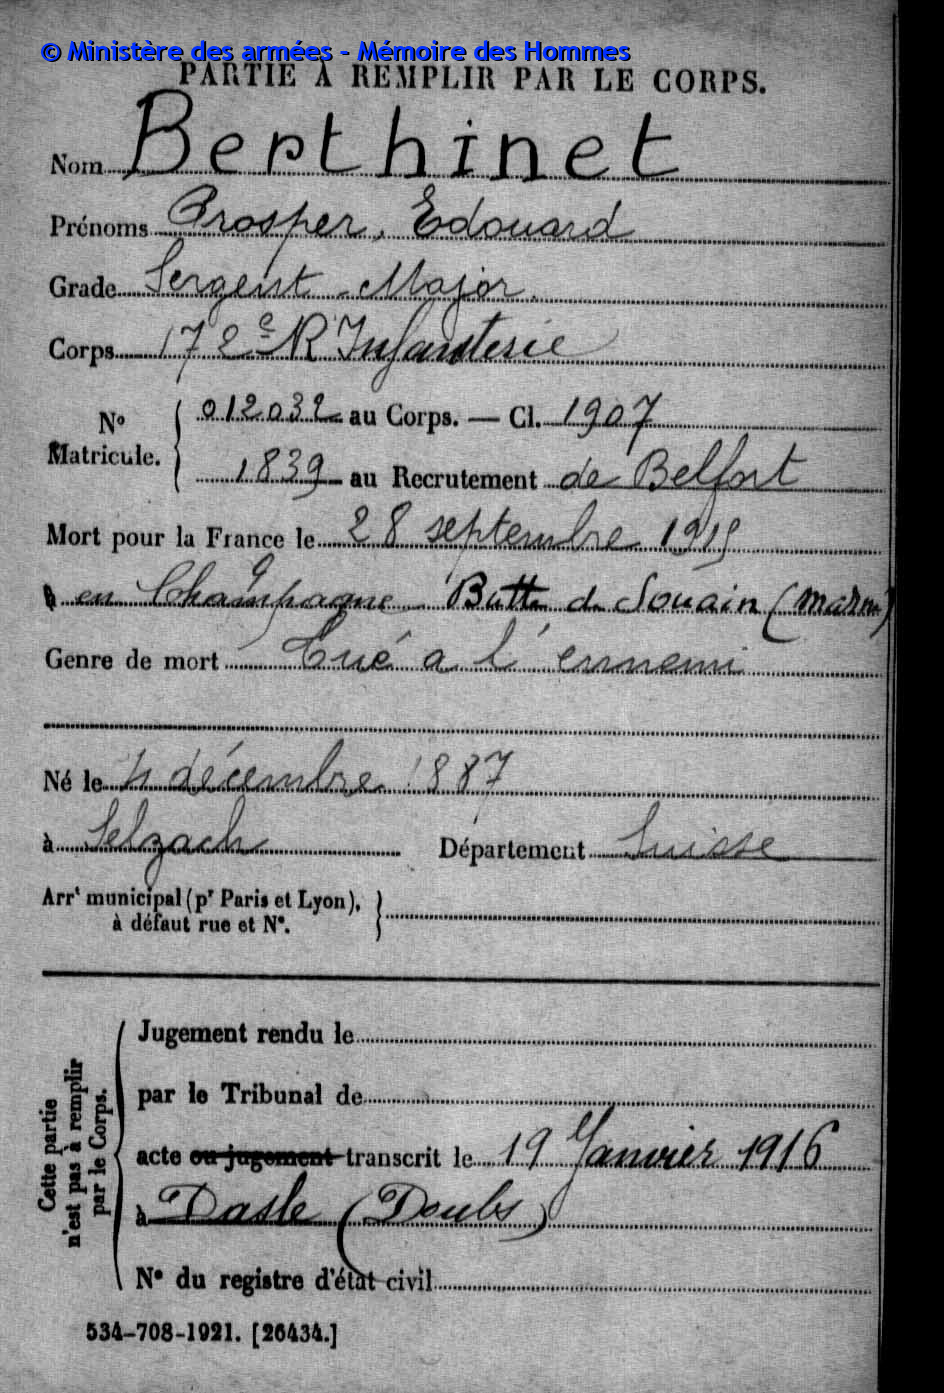 © Ministère des armées - Mémoire des Hommes
PARTIE À REMPLIR PAR LE CORPS.
Nom Berthinet
Prénoms Prosper, Edouard
Grade Sergent-Major.
Corps 172e R Infanterie
No Matricule. { 012032 au Corps. — Cl. 1907
1839 au Recrutement de Belfort
Mort pour la France le 28 septembre 1915
à en Champagne. Butte de Souain (Marne)
Genre de mort Tué à l'ennemi
Né le 4 décembre 1887
à Selzach Département Suisse
Arrt municipal (pr Paris et Lyon),
à défaut rue et No.
Cette partie n'est pas à remplir par le Corps.
Jugement rendu le
par le Tribunal de
acte ou jugement transcrit le 19 Janvier 1916
à Dasle (Doubs)
No du registre d'état civil
534-708-1921. [26434.]